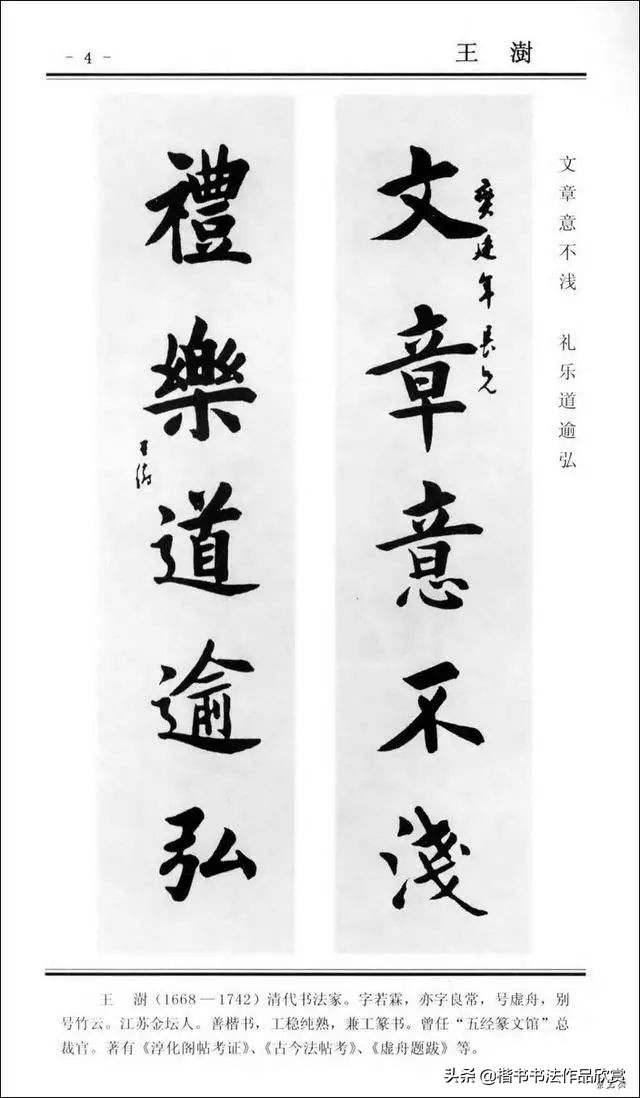 - 4 -
王 澍
文章意不浅 礼乐道逾弘
年長兄
文章意不淺
禮樂道逾弘
王澍
王 澍(1668—1742)清代书法家。字若霖，亦字良常，号虚舟，别
号竹云。江苏金坛人。善楷书，工稳纯熟，兼工篆书。曾任“五经篆文馆”总
裁官。著有《淳化阁帖考证》、《古今法帖考》、《虚舟题跋》等。
头条 @楷书书法作品欣赏